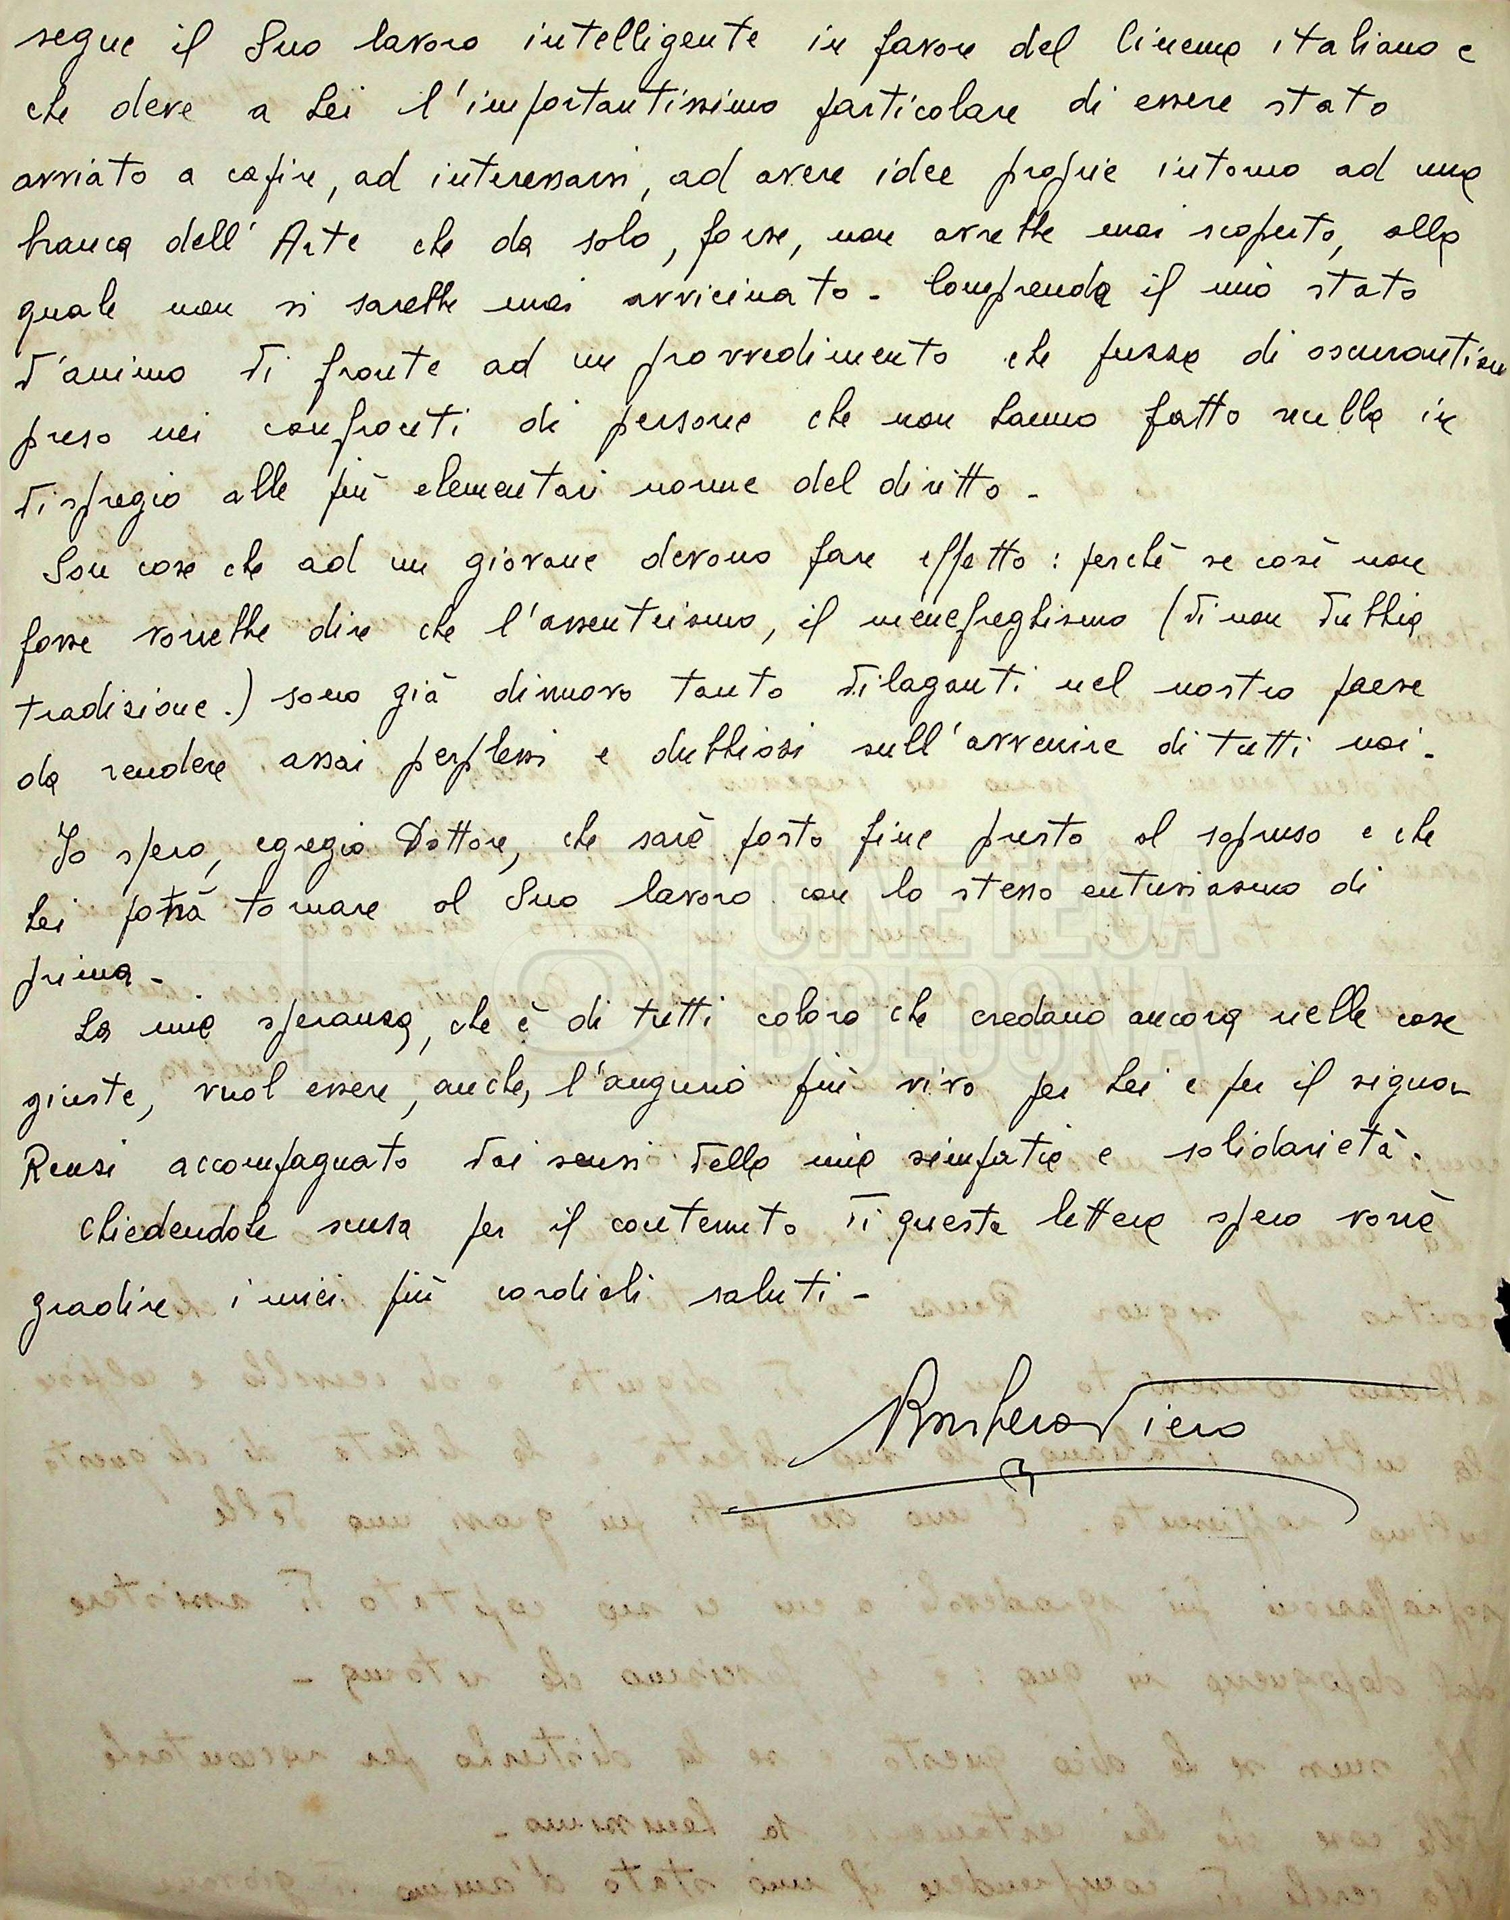 segue il Suo lavoro intelligente in favore del Cinema italiano e
che deve a Lei l'importantissimo particolare di essere stato
avviato a capire, ad interessarsi, ad avere idee proprie intorno ad una
branca dell'Arte che da solo, forse, non avrebbe mai scoperto, alla
quale non si sarebbe mai avvicinato - Comprenda il mio stato
d'animo di fronte ad un provvedimento che puzza di
preso nei confronti di persone che non hanno fatto nulla in
dispregio alle più elementari norme del diritto -
Son cose che ad un giovane devono fare effetto: perché se così non
fosse vorrebbe dire che l'assenteismo, il menefreghismo (di non dubbia
tradizione.) sono già dinuovo tanto dilaganti nel nostro paese
da rendere assai perplessi e dubbiosi sull'avvenire di tutti noi -
Io spero, egregio Dottore, che sarà posto fine presto al sopruso e che
Lei potrà tornare al Suo lavoro con lo stesso entusiasmo di
prima -
La mia speranza, che è di tutti coloro che credono ancora nelle cose
giuste, vuol essere, anche, l'augurio più vivo per Lei e per il signor
Renzi accompagnato dai sensi della mia simpatia e solidarietà.
Chiedendole scusa per il contenuto di questa lettera spero vorrà
gradire i miei più cordiali saluti -
Piero
CINETECA
BOLOGNA